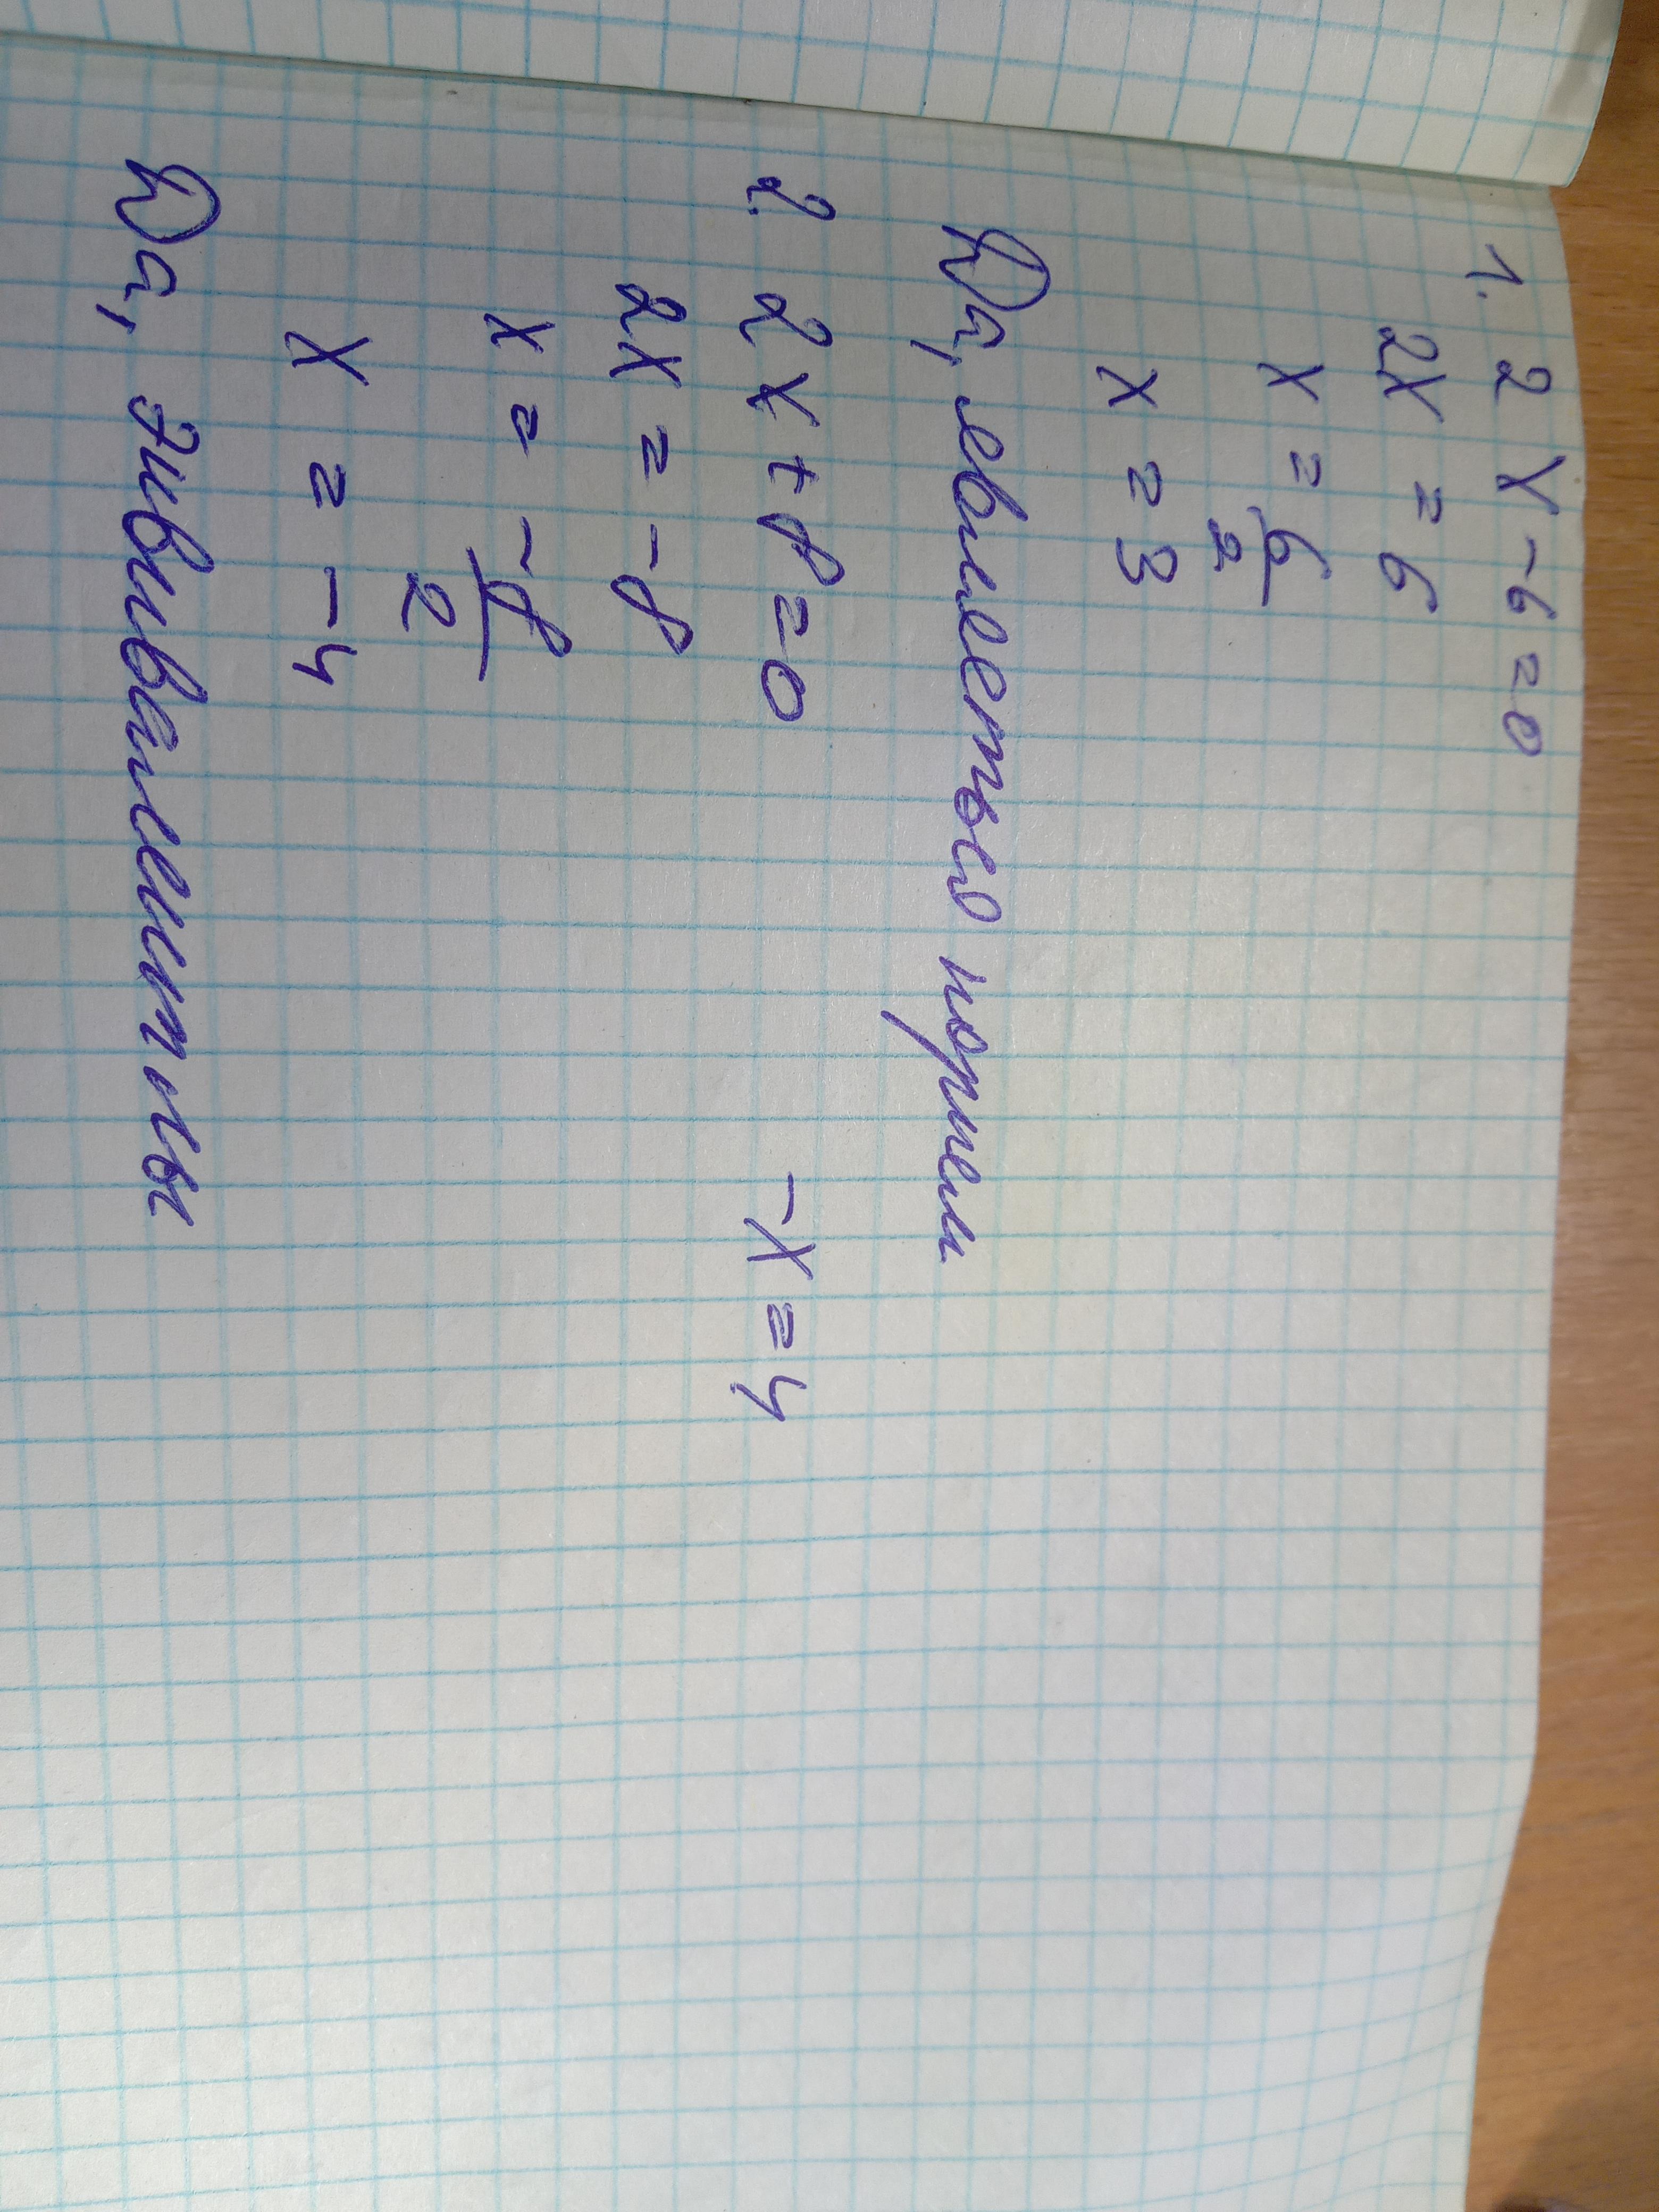 1. 2x-6=0
2x = 6
x = 6/2
x = 3
Да, является корнем
2. 2x+8=0 -x=4
2x = -8
x = -8/2
x = -4
Да, эквивалентны